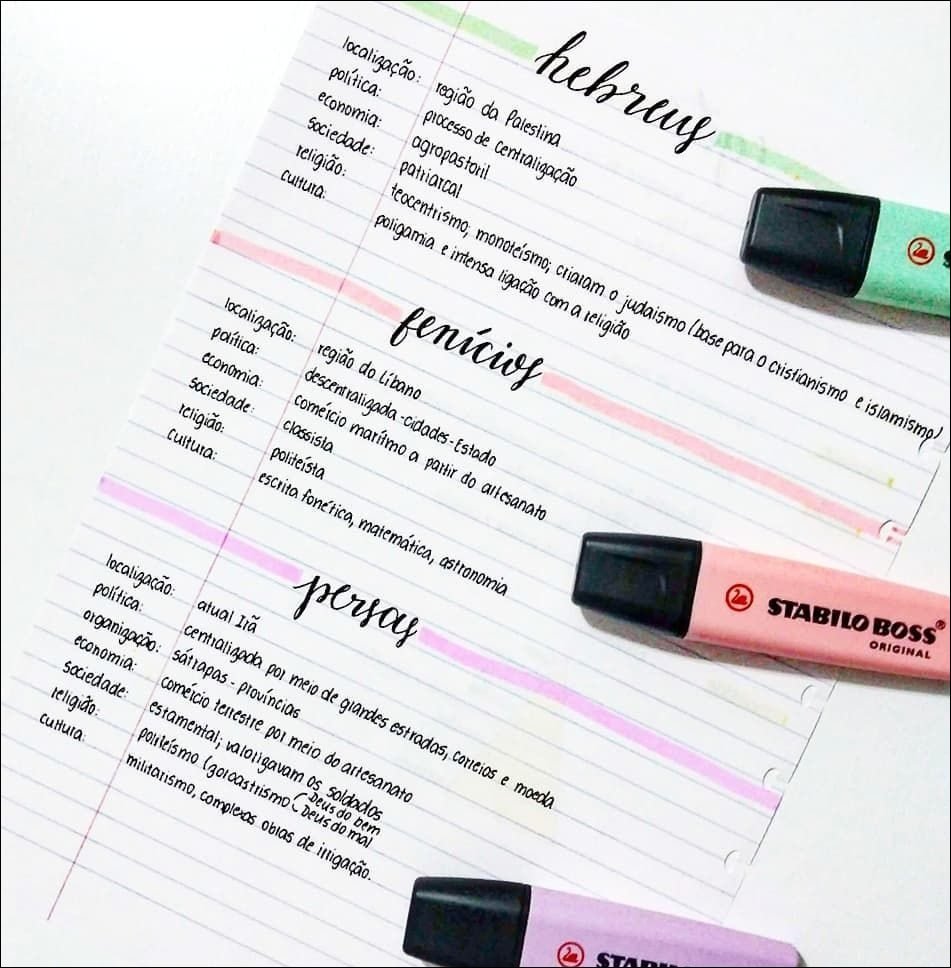 hebreus
localização: região da Palestina
política: processo de centralização
economia: agropastoril
sociedade: patriarcal
religião: teocentrismo; monoteísmo; criaram o judaísmo (base para o cristianismo e islamismo)
cultura: poligamia e intensa ligação com a religião
fenícios
localização: região do Líbano
política: descentralizada - cidades-Estado
economia: comércio marítmo a partir do artesanato
sociedade: classista
religião: politeísta
cultura: escrita fonética, matemática, astronomia
STABILO BOSS®
ORIGINAL
persas
localização: atual Irã
política: centralizada por meio de grandes estradas, correios e moeda
organização: sátrapas - províncias
economia: comércio terrestre por meio do artesanato
sociedade: estamental; valorizavam os soldados
religião: politeísmo (zoroastrismo (Deus do bem
Deus do mal
cultura: militarismo, complexas obras de irrigação.